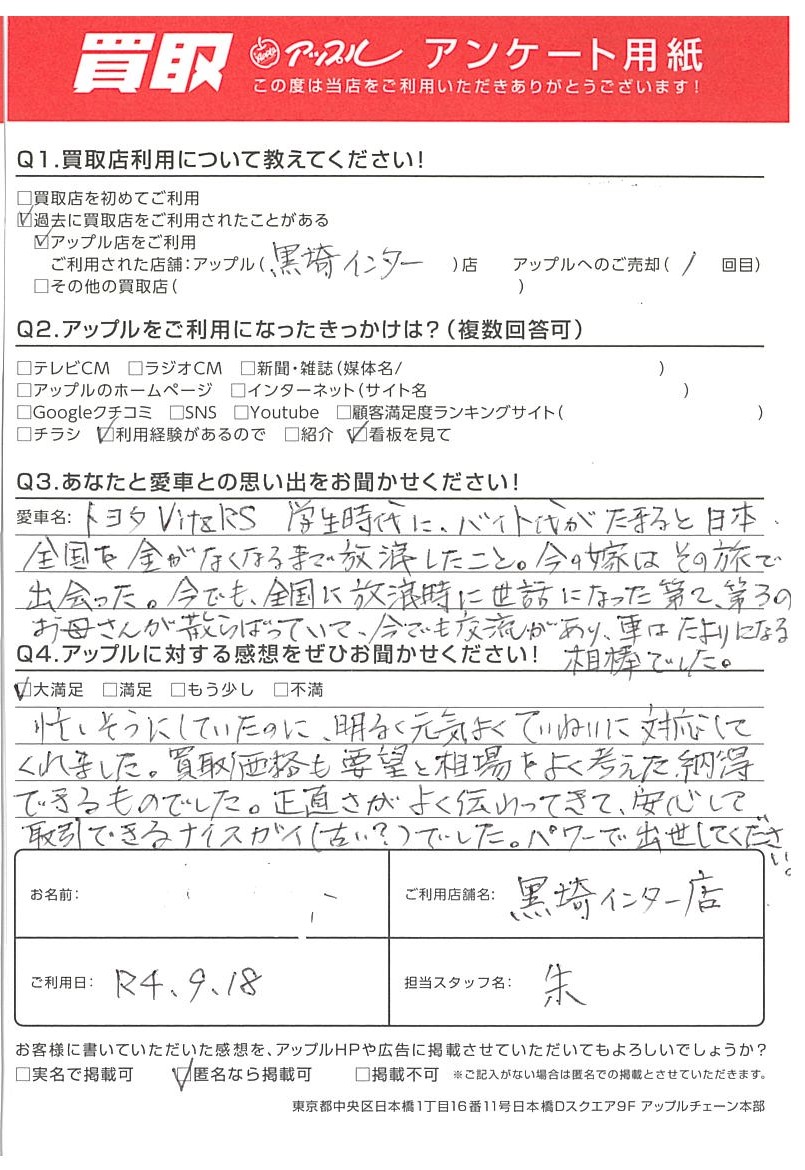 買取 アップル アンケート用紙
この度は当店をご利用いただきありがとうございます!
Q1.買取店利用について教えてください!
□買取店を初めてご利用
☑過去に買取店をご利用されたことがある
☑アップル店をご利用
ご利用された店舗:アップル(黒埼インター)店 アップルへのご売却(1回目)
□その他の買取店( )
Q2.アップルをご利用になったきっかけは?(複数回答可)
□テレビCM □ラジオCM □新聞・雑誌(媒体名/ )
□アップルのホームページ □インターネット(サイト名 )
□Googleクチコミ □SNS □Youtube □顧客満足度ランキングサイト( )
□チラシ ☑利用経験があるので □紹介 ☑看板を見て
Q3.あなたと愛車との思い出をお聞かせください!
愛車名:トヨタ VitzRS 学生時代に、バイト代がたまると日本
全国を金がなくなるまで放浪したこと。今の嫁はその旅で
出会った。今でも、全国に放浪時に世話になった第2、第3の
お母さんが散らばっていて、今でも交流があり、車はたよりになる
相棒でした。
Q4.アップルに対する感想をぜひお聞かせください!
☑大満足 □満足 □もう少し □不満
忙しそうにしていたのに、明るく元気よくていねいに対応して
くれました。買取価格も要望と相場をよく考えた納得
できるものでした。正直さがよく伝わってきて、安心して
取引できるナイスガイ(古い?)でした。パワーで出世してください。
お名前: ご利用店舗名:黒埼インター店
ご利用日:R4、9、18 担当スタッフ名:朱
お客様に書いていただいた感想を、アップルHPや広告に掲載させていただいてもよろしいでしょうか?
□実名で掲載可 ☑匿名なら掲載可 □掲載不可 ※ご記入がない場合は匿名での掲載とさせていただきます。
東京都中央区日本橋1丁目16番11号日本橋Dスクエア9F アップルチェーン本部